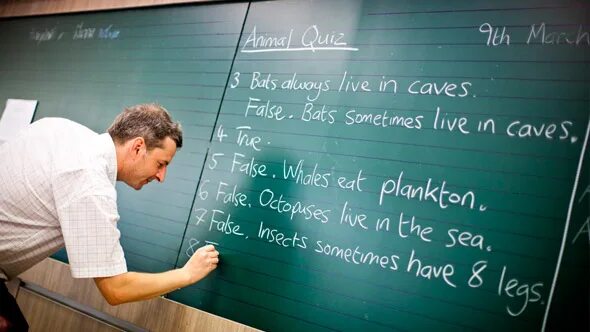 Animal Quiz
9th March
3 Bats always live in caves.
False. Bats sometimes live in caves.
4 True.
5 False. Whales eat plankton.
6 False. Octopuses live in the sea.
7 False. Insects sometimes have 8 legs.
8